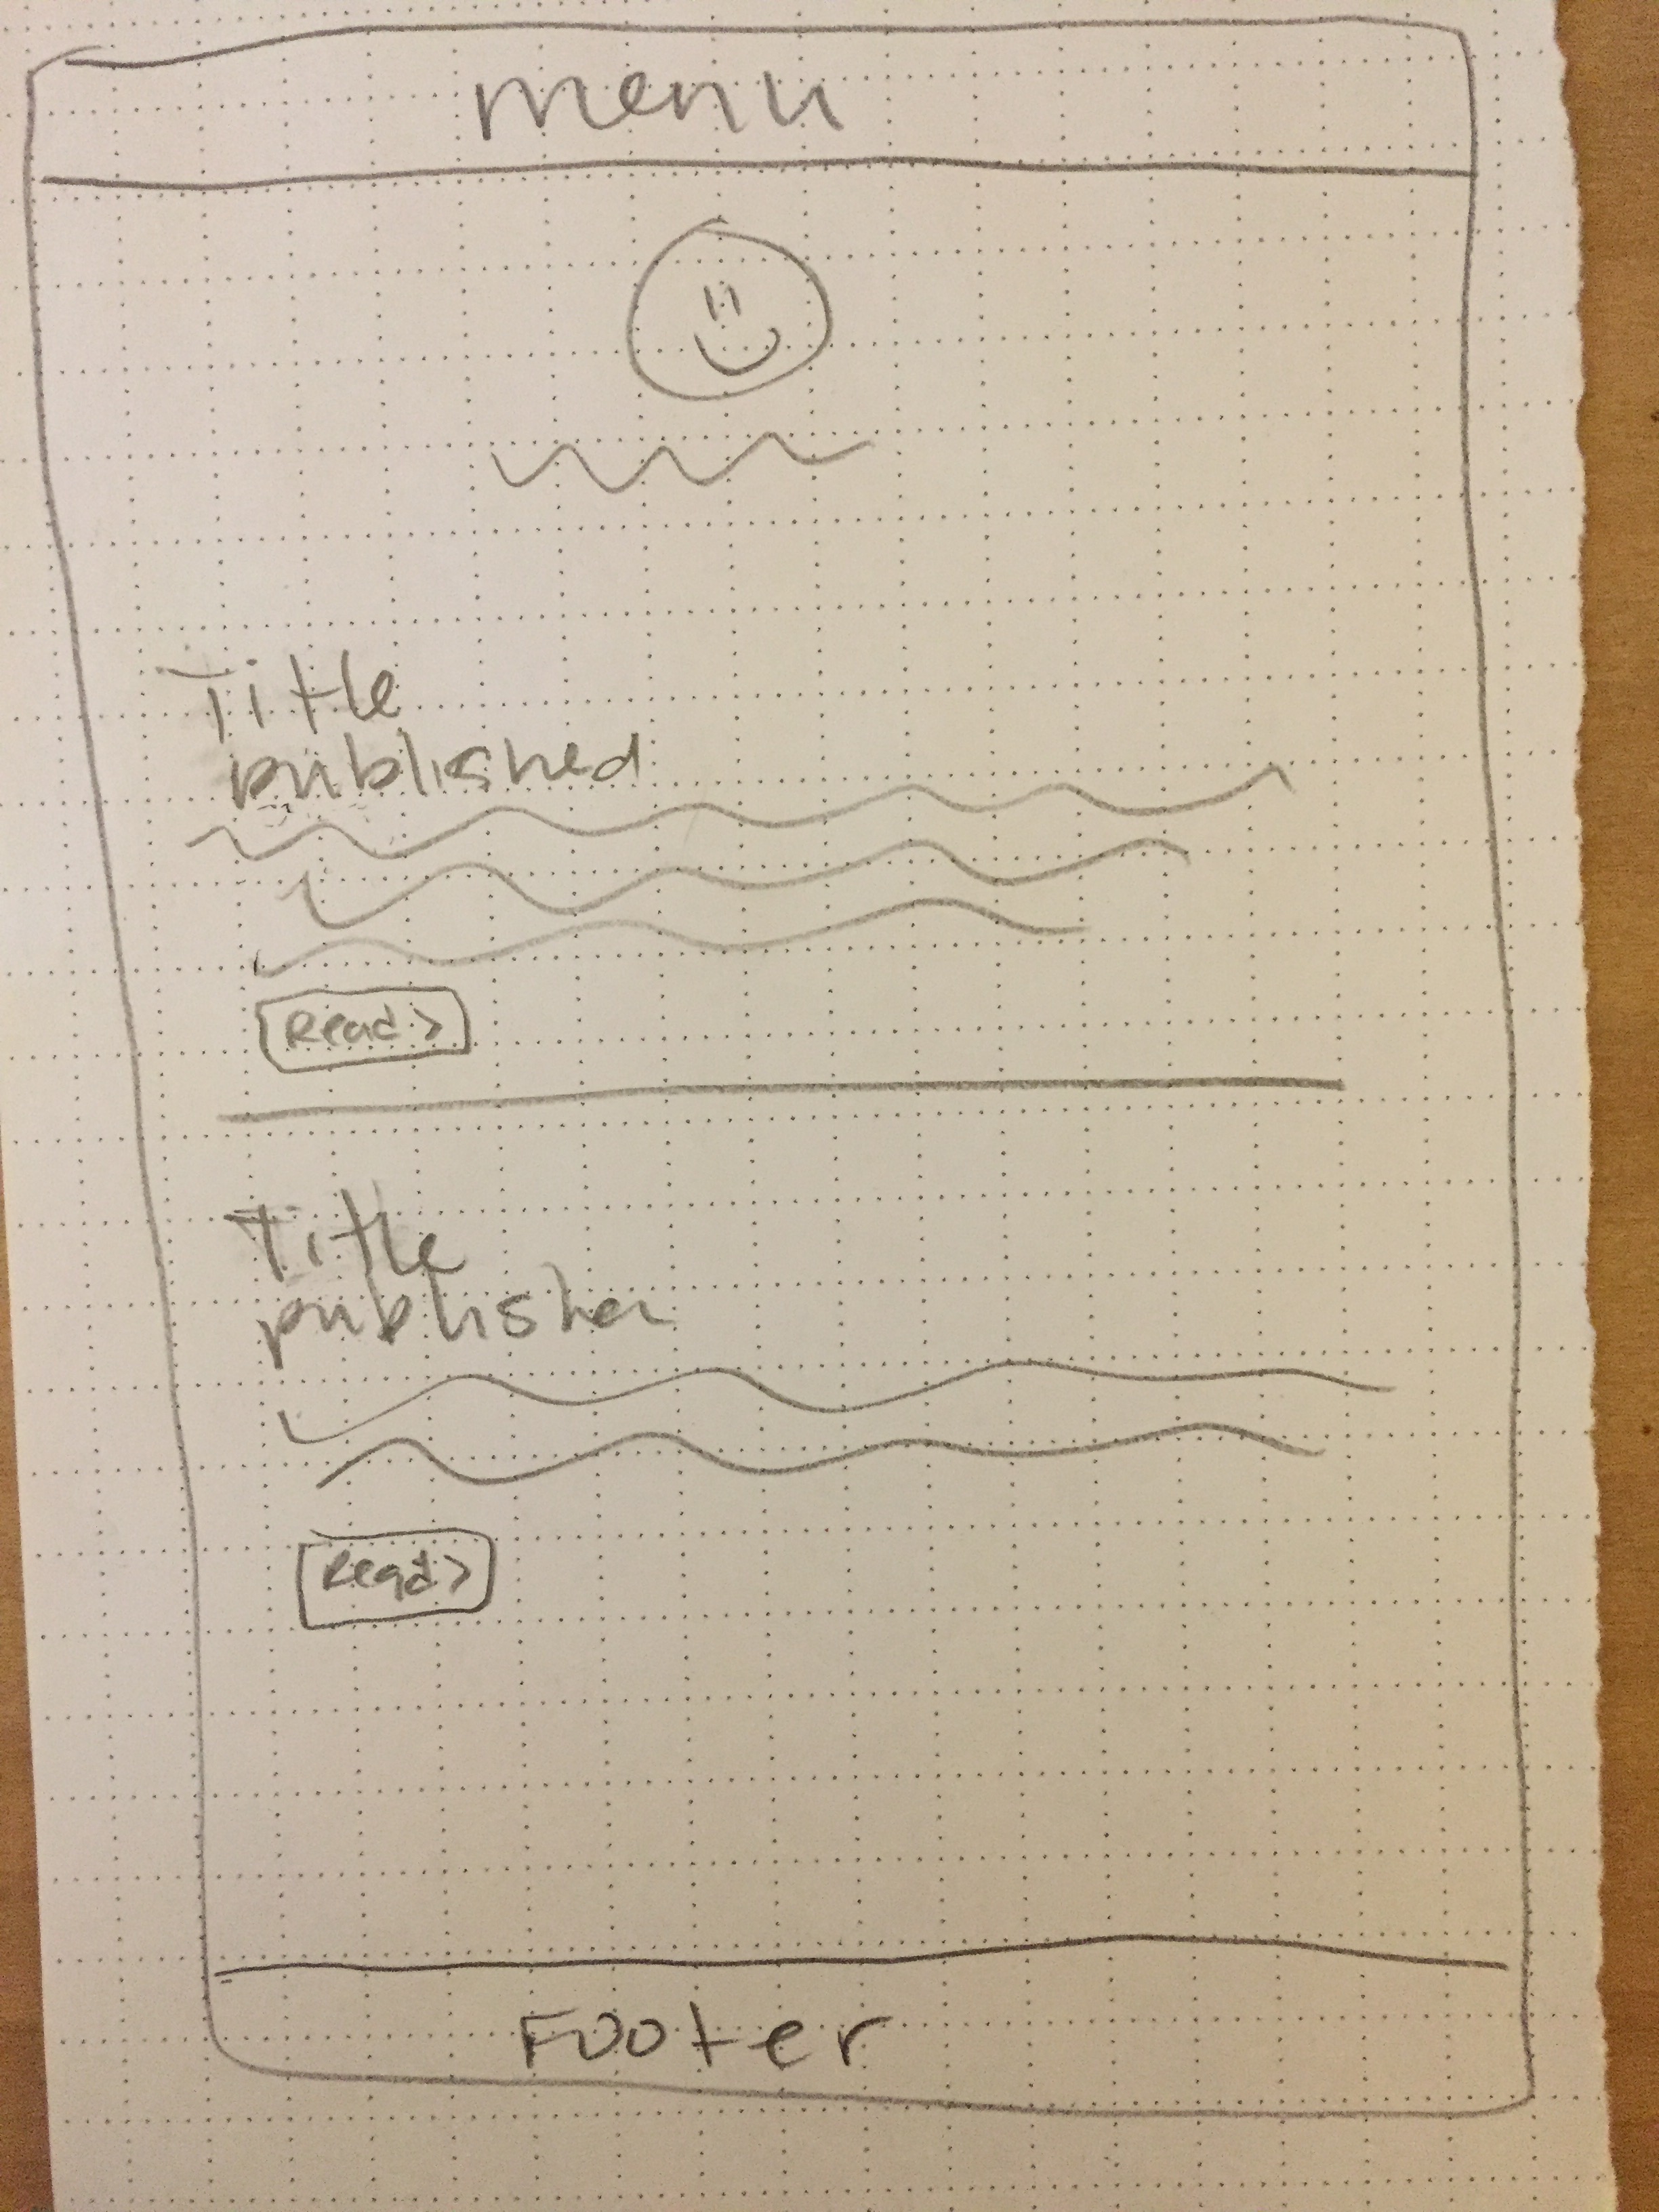 menu
Title
published
Read >
Title
publisher
Read >
Footer